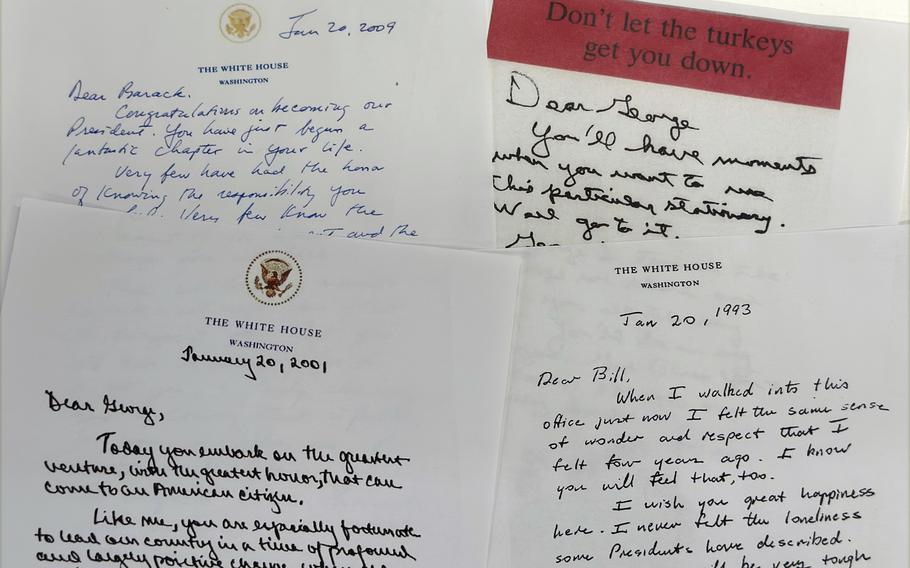 Jan 20, 2009
THE WHITE HOUSE
WASHINGTON
Dear Barack.
Congratulations on becoming our
President. You have just begun a
fantastic chapter in your life.
Very few have had the honor
of knowing the responsibility you
Very few know the
and the
Don't let the turkeys
get you down.
Dear George
You'll have moments
when you want to use
this particular stationary.
Well go to it.
THE WHITE HOUSE
WASHINGTON
January 20, 2001
Dear George,
Today you embark on the greatest
venture, with the greatest honor, that can
come to an American citizen.
Like me, you are especially fortunate
to lead our country in a time of profound
and largely positive change,
THE WHITE HOUSE
WASHINGTON
Jan 20, 1993
Dear Bill,
When I walked into this
office just now I felt the same sense
of wonder and respect that I
felt four years ago. I know
you will feel that, too.
I wish you great happiness
here. I never felt the loneliness
some Presidents have described.
be very tough